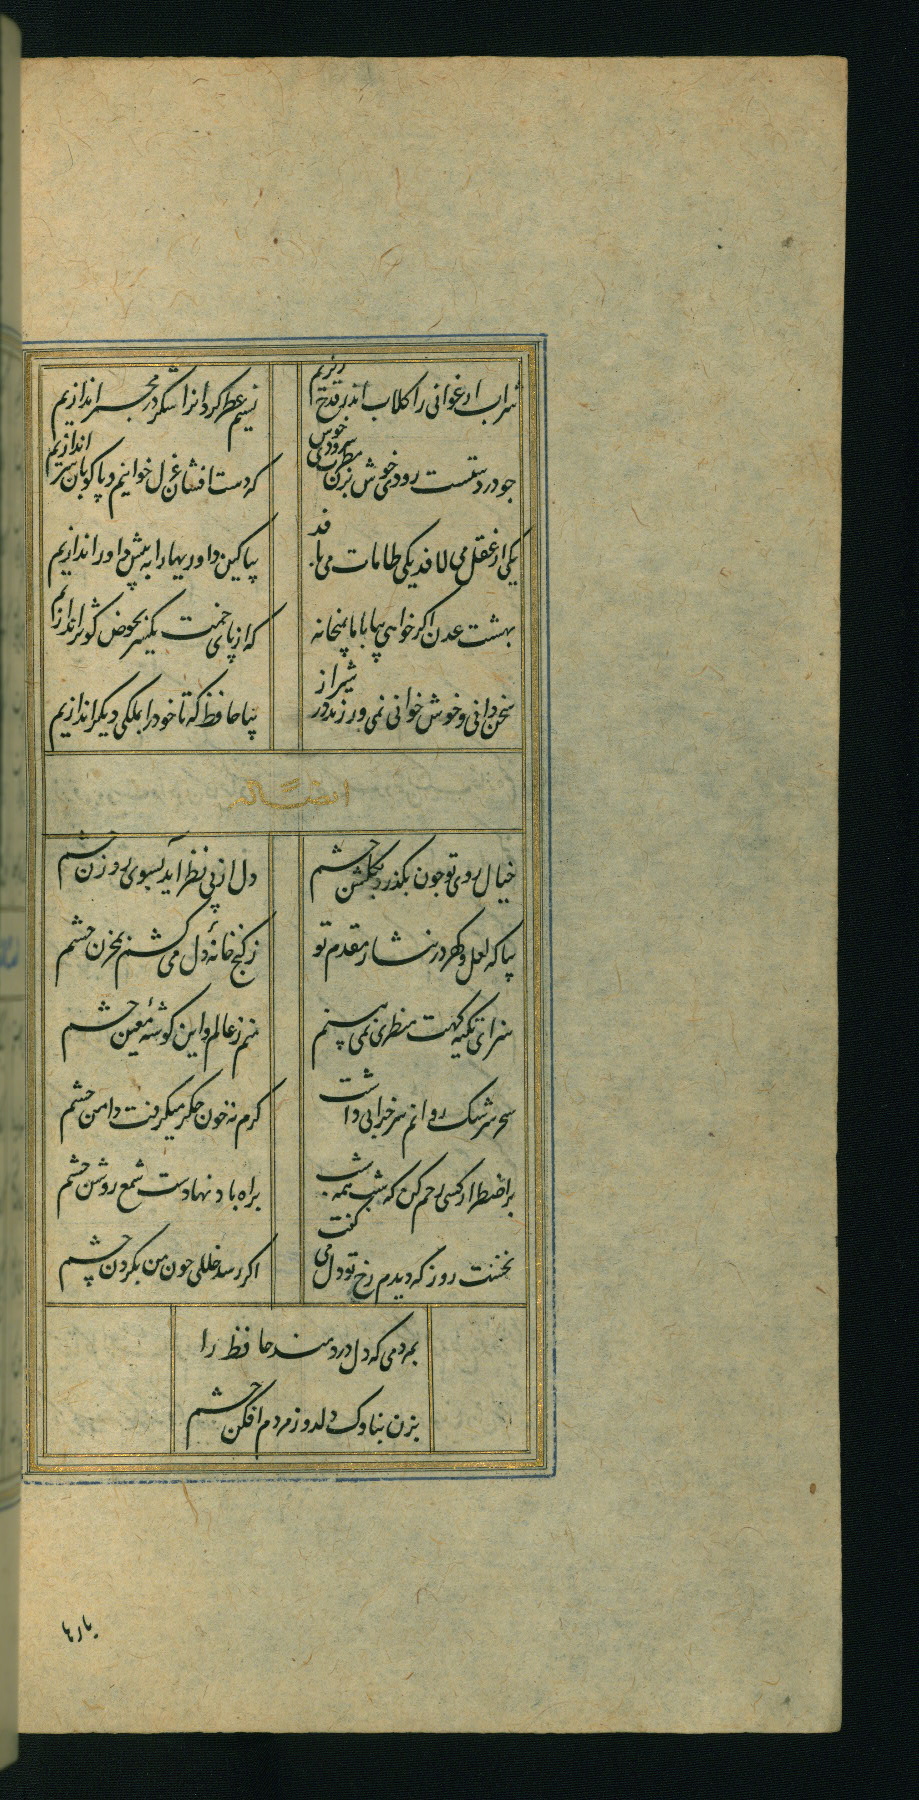 شراب ارغوانی را کلاب اندر قدح ریزیم
نسیم عطرکردانرا شکر در مجمر اندازیم
جو در دستست رودی خوش بزن مطرب سرودی خوش
که دست افشان غزل خوانیم و پاکوبان سر اندازیم
یکی از عقل می لافد یکی طامات می بافد
بیا کین داوریهارا به پیش داور اندازیم
بهشت عدن اکر خواهی بیا باما بمیخانه
که از پای خمت یکسر بحوض کوثر اندازیم
سخن دانی و خوش خوانی نمی ورزند در شیراز
بیا حافظ که تا خودرا بملکی دیکر اندازیم
خیال روی تو جون بکذرد بکلشن چشم
دل از پی نظر آید بسوی روزن چشم
بیا که لعل و کهر در نثار مقدم تو
ز کنج خانهٔ دل می کشم بمخزن چشم
سزای تکیه کهت منظری نمی بینم
منم ز عالم و این کوشهٔ معین چشم
سحر سرشک روانم سر خرابی داشت
کرم نه خون جکر میکرفت دامن چشم
براه باد نهادست شمع روشن چشم
نخست روز که دیدم رخ تو دل می کفت
اکر رسد خللی خون من بکردن چشم
بمردمی که دل دردمند حافظ را
بزن بناوک دلدوز مردم افکن چشم